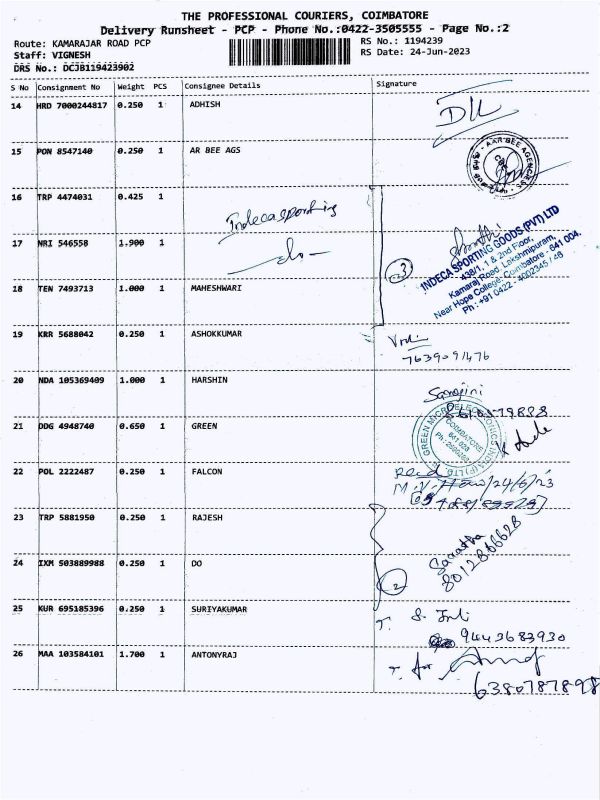 THE PROFESSIONAL COURIERS, COIMBATORE
Delivery Runsheet - PCP - Phone No.:0422-3505555 - Page No.:2
Route: KAMARAJAR ROAD PCP
RS No.: 1194239
Staff: VIGNESH
RS Date: 24-Jun-2023
DRS No.: DCJB119423902
S No Consignment No Weight PCS Consignee Details Signature
14 HRD 7000244817 0.250 1 ADHISH
15 PON 8547140 0.250 1 AR BEE AGS
AAR BEE AGENCIES
16 TRP 4474031 0.425 1 Indecasporting
17 NRI 546558 1.900 1 do
3
INDECA SPORTING GOODS (PVT) LTD
438/1, 1 & 2nd Floor,
Kamaraj Road, Lakshmipuram,
Near Hope College, Coimbatore - 641 004.
18 TEN 7493713 1.000 1 MAHESHWARI
19 KRR 5688042 0.250 1 ASHOKKUMAR
7639091476
20 NDA 105369409 1.000 1 HARSHIN
Sarojini
21 DDG 4948740 0.650 1 GREEN
GREEN MICROELECTRONICS INDIA (P) LTD.
COIMBATORE
22 POL 2222487 0.250 1 FALCON
24/6/23
23 TRP 5881950 0.250 1 RAJESH
24 IXM 503889988 0.250 1 DO
2
8012866628
25 KUR 695185396 0.250 1 SURIYAKUMAR
9443683930
26 MAA 103584101 1.700 1 ANTONYRAJ
6380787898